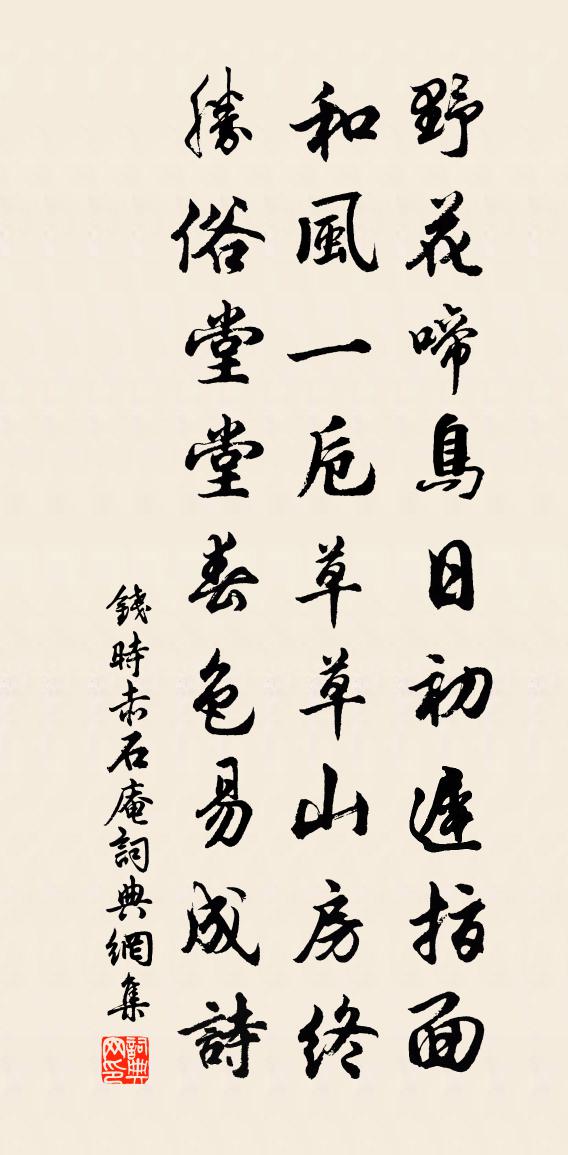 野花啼鳥日初遲指面
和風一卮草草山房終
勝俗堂堂春色易成詩
錢時赤石庵詞典網集
詞典网印